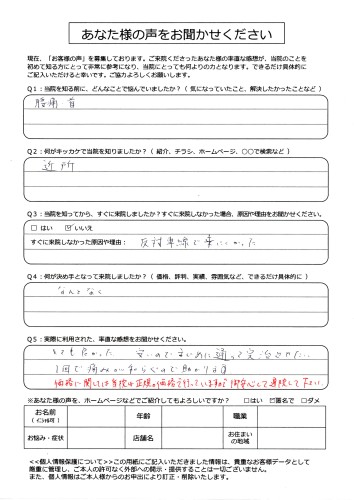 あなた様の声をお聞かせください
現在、「お客様の声」を募集しております。ご来院くださったあなた様の率直な感想が、当院のことを
初めて知る方にとって非常に参考になり、当院にとっても何よりの力となります。できるだけ具体的に
ご記入いただけると幸いです。ご協力よろしくお願いします。
Q1:当院を知る前に、どんなことで悩んでいましたか?( 気になっていたこと、解決したかったことなど )
腰痛 首
Q2:何がキッカケで当院を知りましたか?( 紹介、チラシ、ホームページ、○○で検索など )
近所
Q3:当院を知ってから、すぐに来院しましたか?すぐに来院しなかった場合、原因や理由をお聞かせください。
□ はい ☑ いいえ
すぐに来院しなかった原因や理由: 反対車線で
Q4:何が決め手となって来院しましたか?( 価格、評判、実績、雰囲気など、できるだけ具体的に )
なんとなく
Q5:実際に利用された、率直な感想をお聞かせください。
とても良かった 安いのでまじめに通って完治させたい
1回で痛みが和らぐので助かります
価格に関しては当院は正規の価格で行っていますので御安心して通院して下さい
※あなた様の声を、ホームページなどでご紹介してもよろしいですか? □はい ☑匿名で □ダメ
お名前 年齢 職業
(イニシャル可)
お悩み・症状 店舗名 お住まい
の地域
<<個人情報保護について>>この用紙にご記入いただきました情報は、貴重なお客様データとして
厳重に管理し、ご本人の許可なく外部への開示・提供することは一切ございません。
また、個人情報はご本人様からのお申出により訂正・削除いたします。